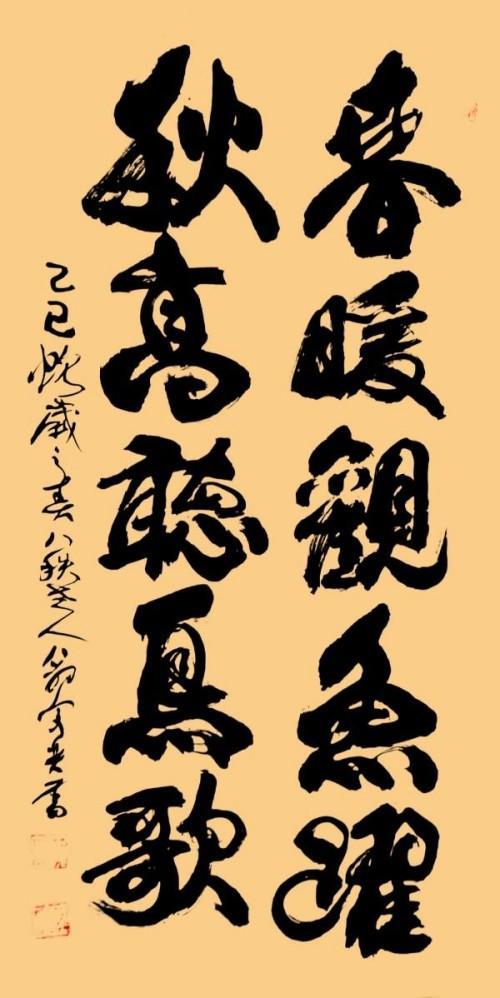 春暖觀魚躍
秋高聽鳥歌
乙巳蛇歲之春八秩老人翁